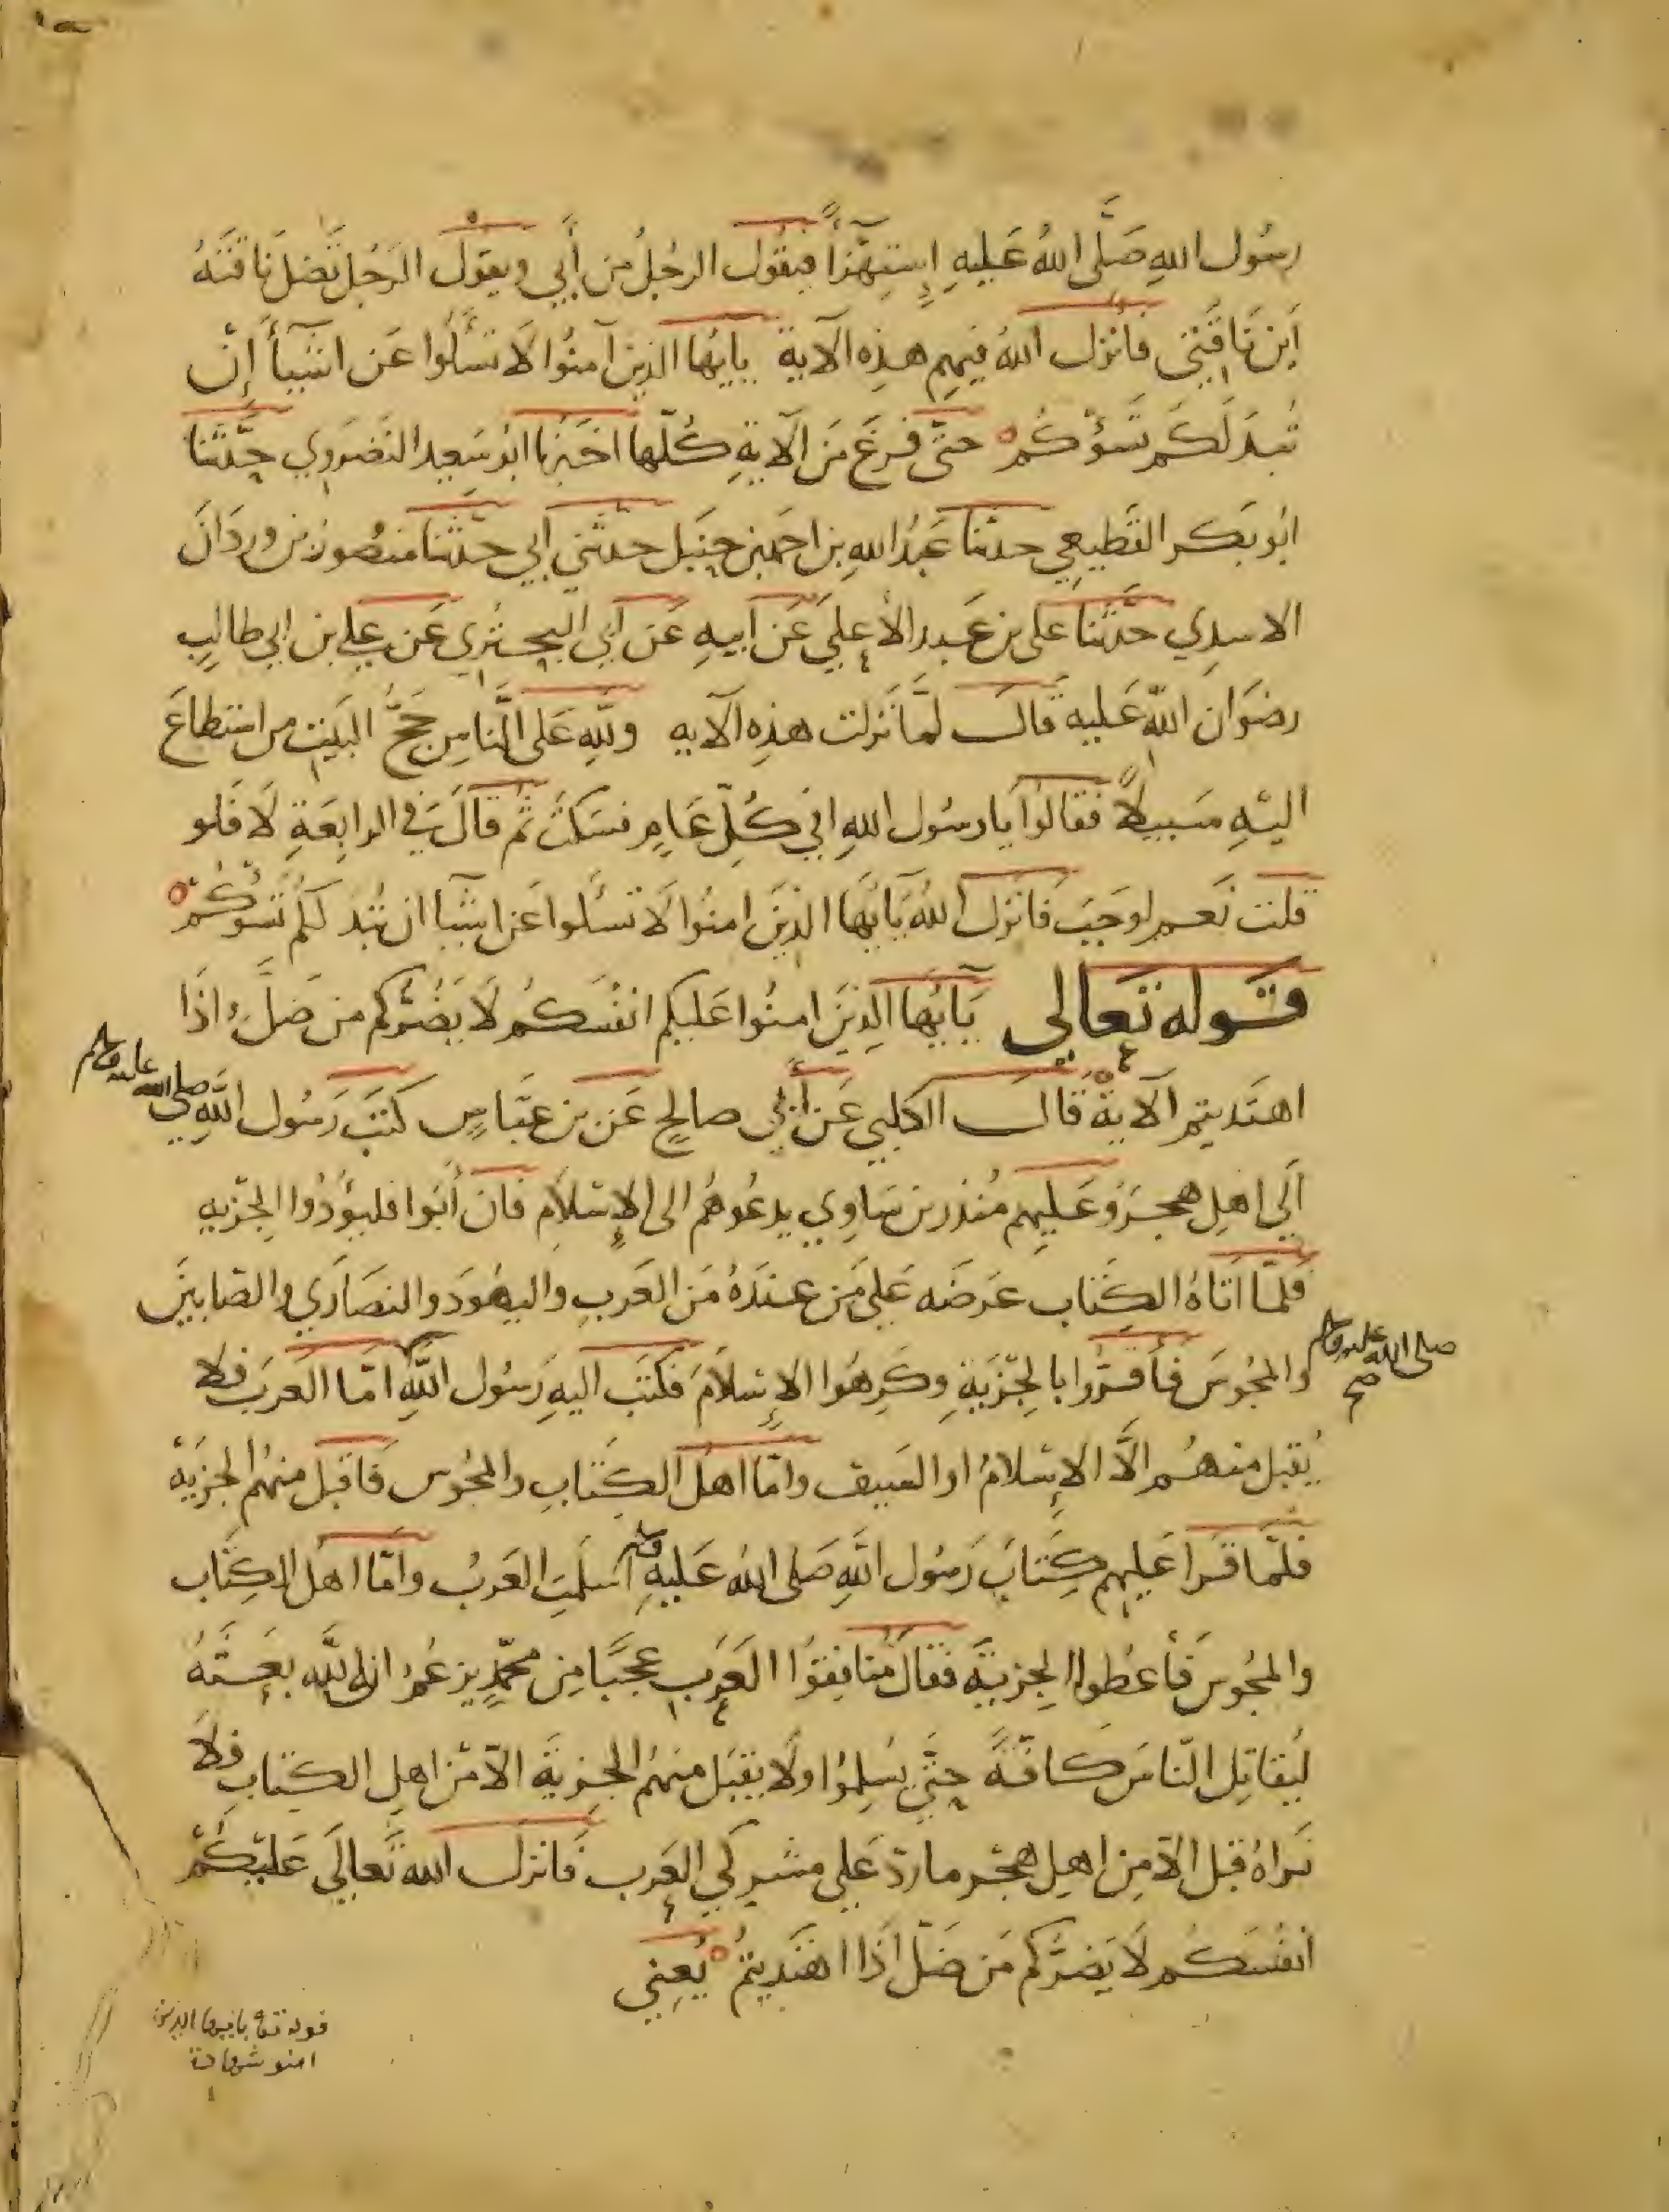 رسُول اللهِ صَلَّى اللهُ عَليهِ إستهزاً فيقُول الرجُلُ من أبي ويقول الرجُل تَضل نَاقتهُ
أين نَاقتي فأنزل اللهُ فيهِم هذه الآية يايُها الذين آمنُوا لا تسألُوا عَن اشيآء إن
تُبدَ لَكُم تَسُؤكُم حتى فرغَ مَن الآيةِ كُلّها أخبرنا ابُو سَعِيد النَصروي حدّثنا
ابُو بَكر القَطيعي حدثنا عَبدُ اللهِ بن احمد بن حنبَل حدثني أبي حدّثنا منصُور بن وردَانَ
الاسدِي حدَّثنا على بن عَبد الأعلى عَن أبيهِ عَن أبي البَختري عَن علي بن ابي طالبٍ
رضوَان اللهِ عَليه قال لمَّا نَزلت هذِه الآيه وللهِ عَلى النَّاسِ حَجُّ البَيتِ من استطاعَ
اليهِ سَبيلاً فقَالُوا يا رسُول اللهِ افي كُلِّ عَامٍ فسَكتَ ثم قالَ في الرابعَةِ لَا فَلو
قلت نَعم لوجَبَت فَانزل اللهُ يَآيُّها الذينَ امنُوا لَا تسألوا عَن اشيآء ان تُبدَ لكُم تَسُؤكُم
قوله تعالى يَآيُّها الذينَ امنُوا عَليكم انفُسَكُم لَا يَضُرُّكم من ضَلَّ اذَا
اهتَديتم الآية قَال الكلبي عَن أبي صالحٍ عَن بن عبَّاسٍ كتبَ رَسُول اللهِ صلى
صلى الله عليه وسلم
الَي اهل هجَرَ وعَليهم مُنذر بن سَاوي يدعُوهُم الى الإسلَام فان أبَوا فليؤدُوا الجزيه
فلمّا اتاهُ الكتاب عَرضَه عَلى مَن عندَهُ مَن العَربِ واليهُودَ والنصَارَي والصَابينَ
والمجُوسَ فأقرّوا بالجِزيَةِ وكَرِهُوا الإسلَامَ فكتبَ اليهِ رَسُول اللهِ امّا العَربَ فلا
صلى الله عليه وسلم
صح
يُقبل منهُم الَّا الإسلامُ او السَيف وامّا اهلُ الكتَابِ والمجُوس فَاقبل منهُم الجزيَة
فلمّا قرا عَليهم كتابَ رَسُول اللهِ صَلى اللهُ عَليهِ وسلم اسلَمتِ العَربُ وامّا اهلُ الكتاب
والمجُوسَ فأعطوا الجزيةَ فقال مُنافقوا العَرَبِ عجبًا مِن محمّدٍ يزعُمُ ان اللّه بعثَهُ
ليُقاتِل النّاسَ كافةً حتَّى يُسلِمُوا ولا يقبَل منهُم الجزيةَ الّا مِن اهلِ الكتابِ فلَا
نَراهُ قبل الّا مِن اهلِ هجَر ما ردّ عَلى مشركي العَرب فَانزل الله تَعالَى عَليكُم
انفُسَكُم لَا يَضرُّكم مَن ضَلّ اذَا اهتَديتمُ يَعني
قوله تعا يايها الذين
امنو شهادة